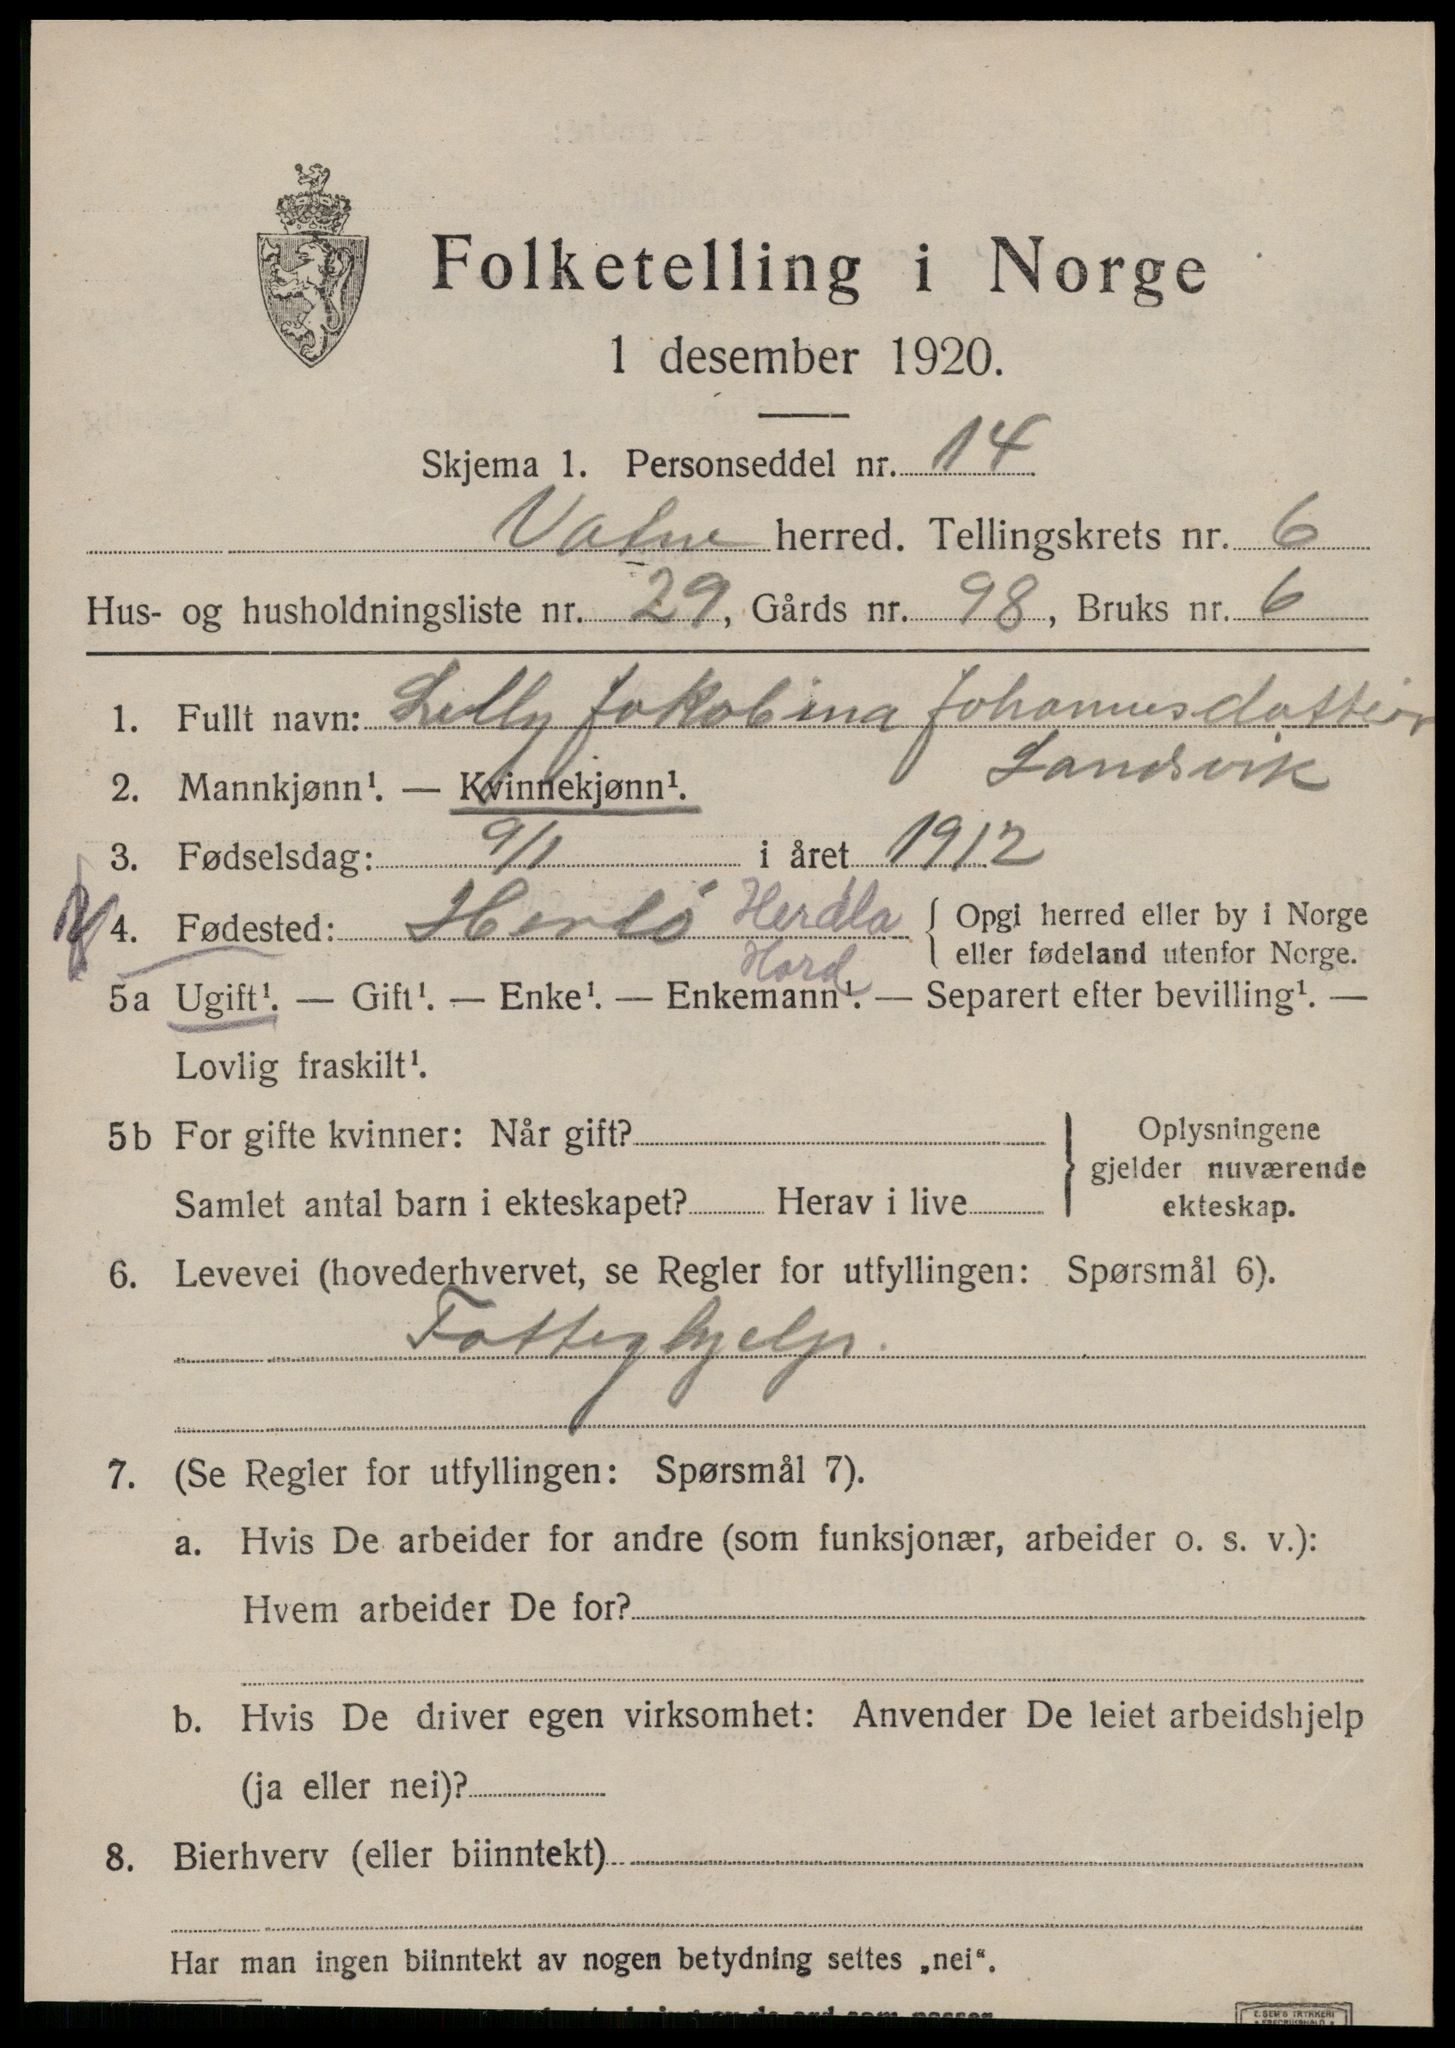 Folketelling i Norge
1 desember 1920.
Skjema 1. Personseddel nr. 14
Vatne herred. Tellingskrets nr. 6
Hus- og husholdningsliste nr. 29, Gårds nr. 98, Bruks nr. 6
1. Fullt navn: Lilly Jakobina Johannesdatter
Landsvik
2. Mannkjønn¹. — Kvinnekjønn¹.
3. Fødselsdag: 9/1 i året 1912
4. Fødested: Herlø Herdla { Opgi herred eller by i Norge
eller fødeland utenfor Norge.
Hord
5a Ugift¹. — Gift¹. — Enke¹. — Enkemann¹. — Separert efter bevilling¹. —
Lovlig fraskilt¹.
5b For gifte kvinner: Når gift? } Oplysningene
gjelder nuværende
Samlet antal barn i ekteskapet? Herav i live ekteskap.
6. Levevei (hovederhvervet, se Regler for utfyllingen: Spørsmål 6).
Fattighjelp.
7. (Se Regler for utfyllingen: Spørsmål 7).
a. Hvis De arbeider for andre (som funksjonær, arbeider o. s. v.):
Hvem arbeider De for?
b. Hvis De driver egen virksomhet: Anvender De leiet arbeidshjelp
(ja eller nei)?
8. Bierhverv (eller biinntekt)
Har man ingen biinntekt av nogen betydning settes „nei“.